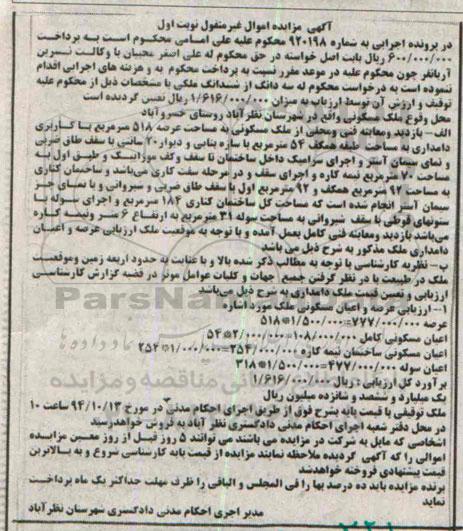 آگهی مزایده اموال غیرمنقول نوبت اول
در پرونده اجرایی به شماره ۹۲۰۱۹۸ محکوم علیه علی امامی محکوم است به پرداخت
۶۰۰/۰۰۰/۰۰۰ ریال بابت اصل خواسته در حق محکوم له علی اصغر محبیان با وکالت نسرین
آریانفر چون محکوم علیه در موعد مقرر نسبت به پرداخت محکوم به و هزینه های اجرایی اقدام
ننموده است به درخواست محکوم له سه دانگ از ششدانگ ملکی با مشخصات ذیل از محکوم علیه
توقیف و ارزش آن توسط ارزیاب به میزان ۱/۶۱۶/۰۰۰/۰۰۰ ریال تعیین گردیده است
محل وقوع ملک مسکونی واقع در شهرستان نظرآباد روستای خسروآباد
الف- بازدید ومعاینه فنی ومحلی از ملک مسکونی به مساحت عرصه ۵۱۸ مترمربع با کاربری
دامداری به مساحت طبقه همکف ۵۴ مترمربع با سازه بنایی و دیوار۲۰ سانتی با سقف طاق ضربی
و نمای سیمان آستر و اجرای سرامیک داخل ساختمان تا سقف وکف موزائیک و طبق اول به
مساحت ۷۰ مترمربع نیمه کاره و اجرای سقف و در مرحله سفت کاری می‌باشد و ساختمان کناری
به مساحت ۹۲ مترمربع همکف و ۹۲ مترمربع اول با سقف طاق ضربی و شیروانی و با نمای جز
سیمان آستر انجام شده است که مساحت کل ساختمان کناری ۱۸۴ مترمربع و اجرای سوله با
ستونهای قوطی با سقف شیروانی به مساحت سوله ۳۱ مترمربع به ارتفاع ۶ متر ونیمه کاره
می‌باشد بازدید ومعاینه فنی کامل بعمل آمده و با توجه به موقعیت ملک ارزیابی عرصه و اعیان
دامداری ملک مذکور به شرح ذیل می باشد
ب- نظریه کارشناسی با توجه به مطالب ذکر شده بالا و با عنایت به حدود اربعه زمین وموقعیت
ملک در طبیعت با در نظر گرفتن جمیع جهات و کلیات عوامل موثر در قضیه گزارش کارشناسی
ارزیابی و تعیین قیمت ملک دامداری به شرح ذیل می‌باشد
۱- ارزیابی عرصه و اعیان مسکونی ملک مورد اشاره
عرصه ۷۷۷/۰۰۰/۰۰۰=۱/۵۰۰/۰۰۰*۵۱۸
اعیان مسکونی کامل ۱۰۸/۰۰۰/۰۰۰=۲/۰۰۰/۰۰۰*۵۴
اعیان مسکونی ساختمان نیمه کاره ۲۵۴/۰۰۰/۰۰۰=۱/۰۰۰/۰۰۰*۲۵۴
اعیان سوله ۴۷۷/۰۰۰/۰۰۰=۱/۵۰۰/۰۰۰*۳۱۸
برآورد کل ارزیابی به ریال ۱/۶۱۶/۰۰۰/۰۰۰
یک میلیارد و ششصد و شانزده میلیون ریال
ملک توقیفی با قیمت پایه بشرح فوق از طریق اجرای احکام مدنی در مورخ ۹۴/۱۰/۱۳ ساعت ۱۰
در محل دفتر شعبه اجرای احکام مدنی دادگستری نظر آباد به فروش خواهدرسید
اشخاصی که مایل به شرکت در مزایده می باشند می توانند ۵ روز قبل از روز معین مزایده
اموالی را که آگهی گردیده ملاحظه نمایند مزایده از قیمت پایه کارشناسی شروع و به بالاترین
قیمت پیشنهادی فروخته خواهدشد
برنده مزایده باید ده درصد بها را فی المجلس و الباقی را ظرف مهلت حداکثر یک ماه پرداخت
نماید
مدیر اجری احکام مدنی دادگستری شهرستان نظرآباد